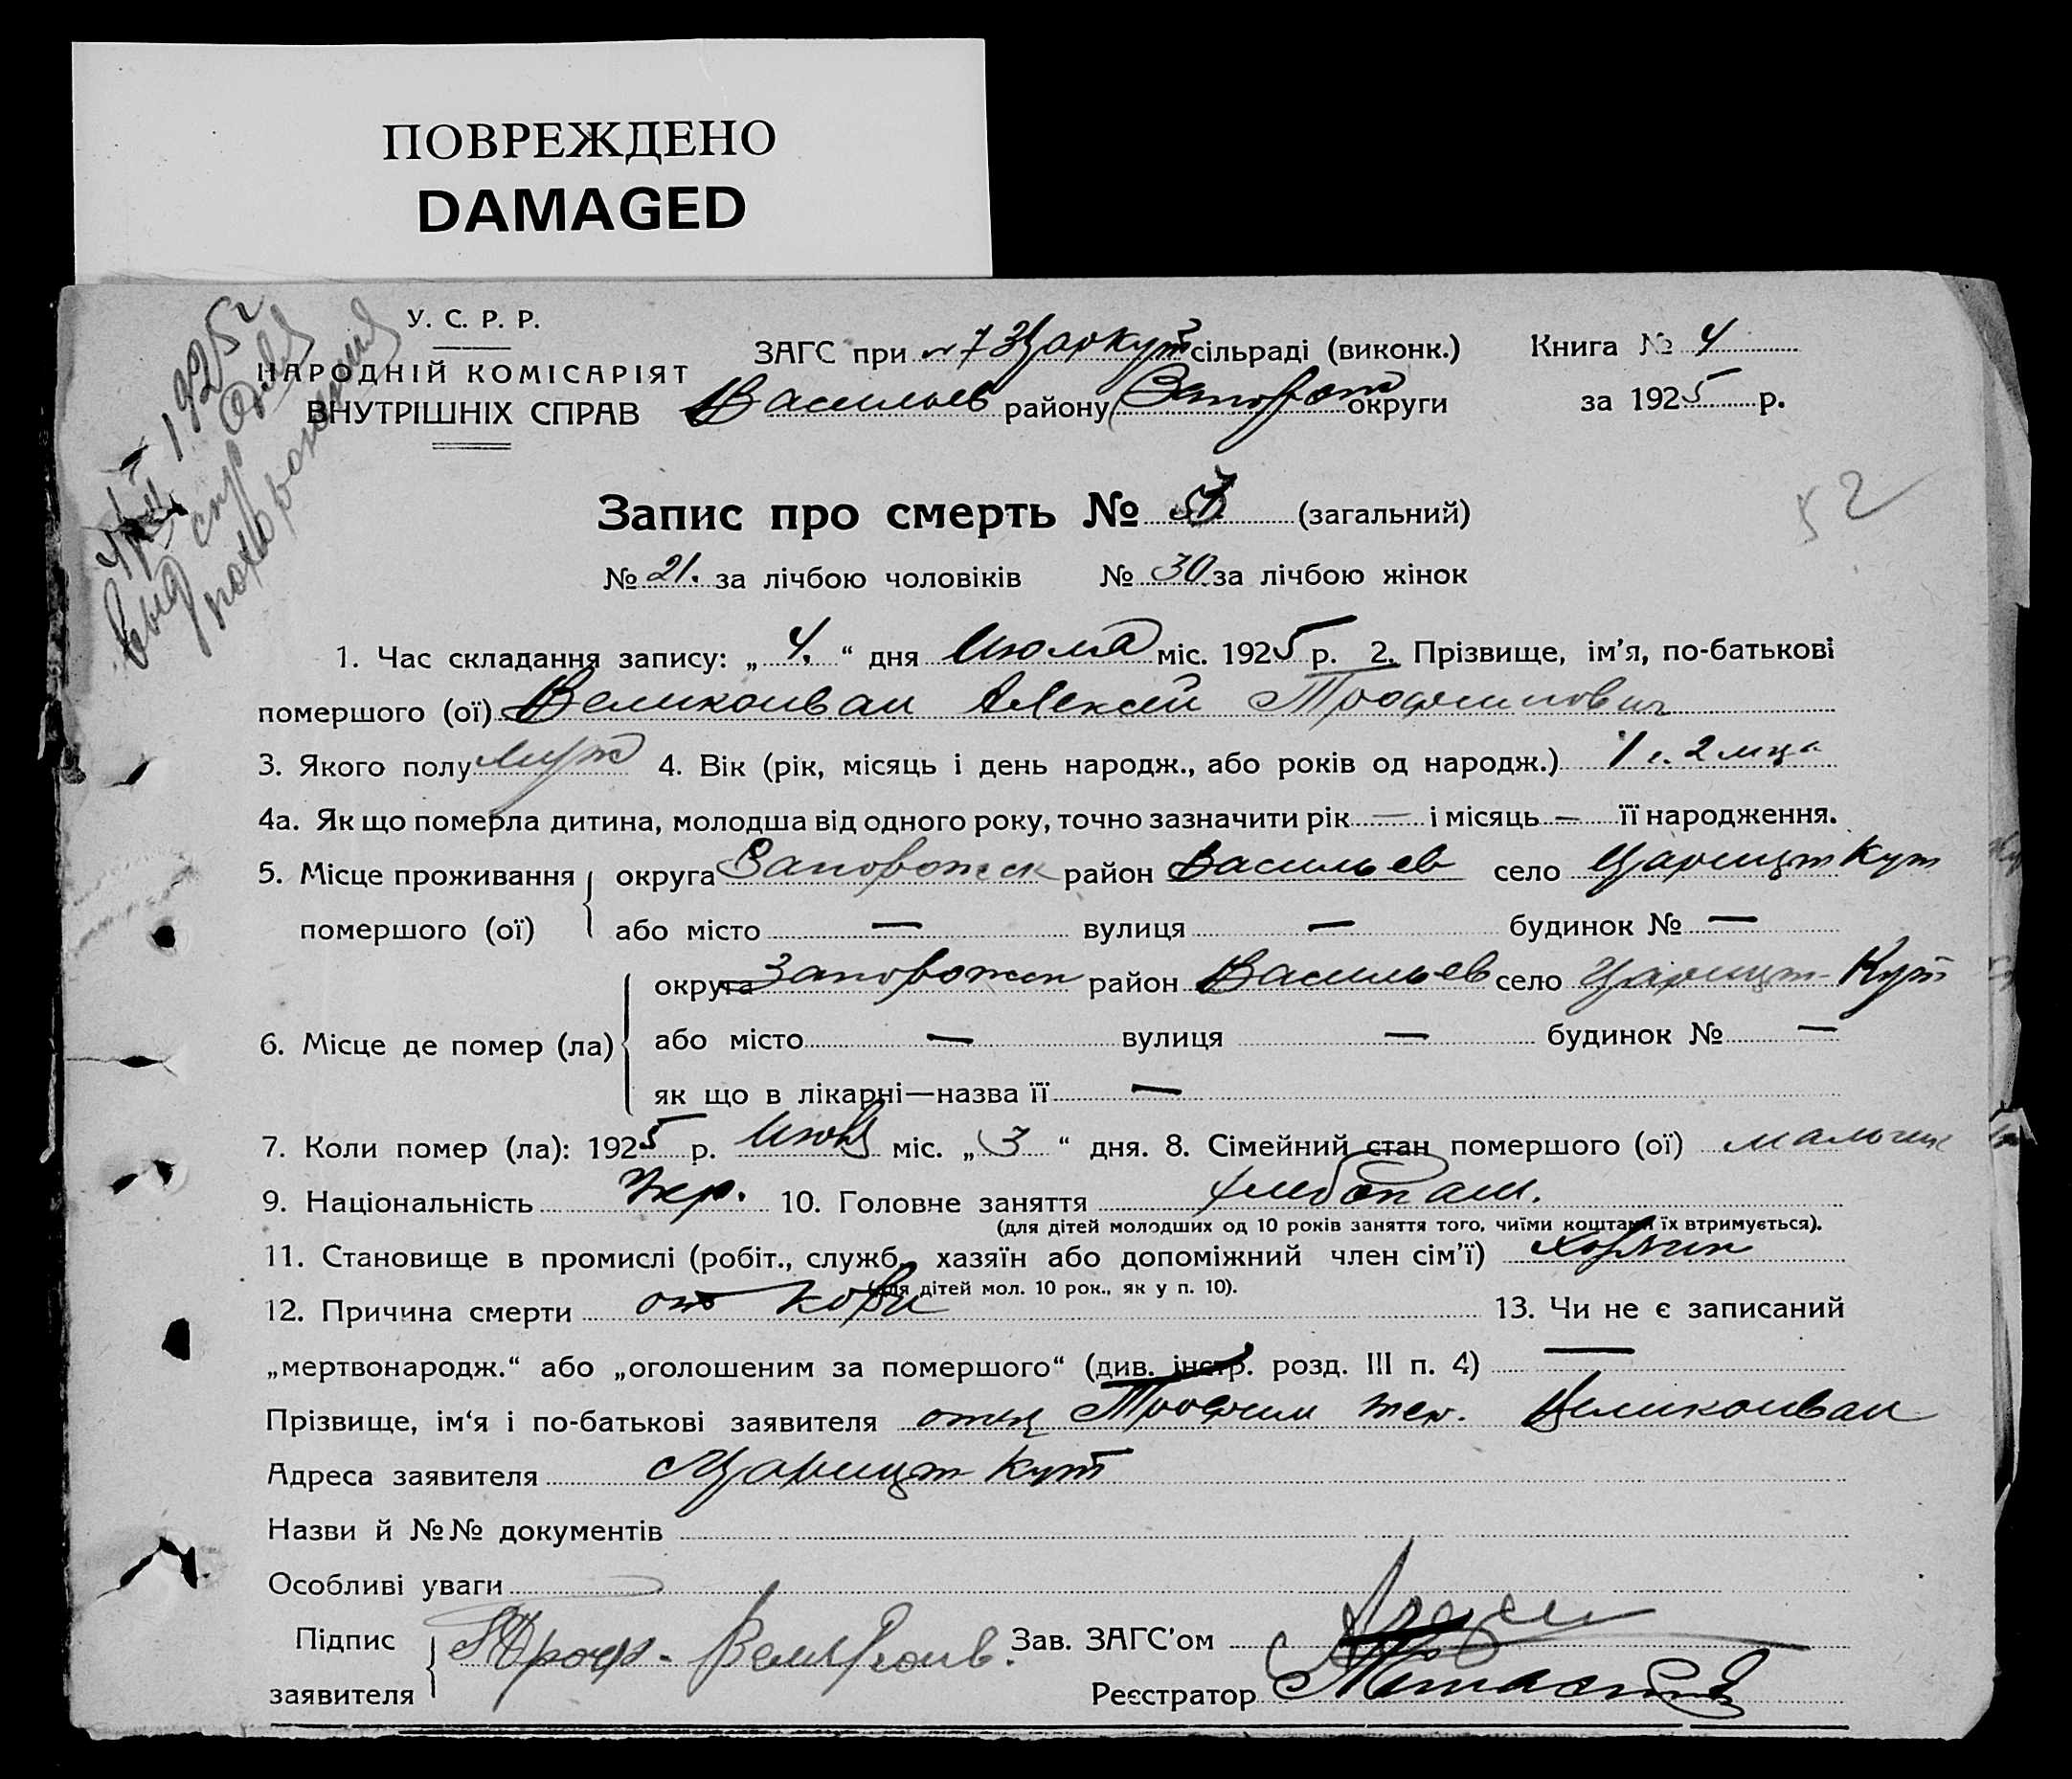 ПОВРЕЖДЕНО
DAMAGED
У. С. Р. Р.
НАРОДНІЙ КОМІСАРІЯТ
ВНУТРІШНІХ СПРАВ
1925 г
ЗАГС при сільраді (виконк.)
Васильев району Запорож округи
Книга № 4
за 1925 р.
Запис про смерть № (загальний)
52
№ 21. за лічбою чоловіків № 30 за лічбою жінок
1. Час складання запису: „ 4. “ дня Июля міс. 1925 р. 2. Прізвище, ім’я, по-батькові
помершого (ої) Великоиван Алексей Трофимович
3. Якого полу муж 4. Вік (рік, місяць і день народж., або років од народж.) 1 г. 2 мца
4а. Як що померла дитина, молодша від одного року, точно зазначити рік — і місяць — її народження.
5. Місце проживання помершого (ої) округа Запорожск район Васильев село Царицын Кут
або місто — вулиця — будинок № —
6. Місце де помер (ла) округа Запорожск район Васильев село Царицын-Кут
або місто — вулиця — будинок № —
як що в лікарні—назва її —
7. Коли помер (ла): 1925 р. Июля міс. „ 3 “ дня. 8. Сімейний стан помершого (ої) мальчик
9. Національність Укр. 10. Головне заняття хлебопаш.
(для дітей молодших од 10 років заняття того, чиїми коштами їх втримується).
11. Становище в промислі (робіт., служб., хазяїн або допоміжний член сім’ї)
(для дітей мол. 10 рок., як у п. 10).
12. Причина смерти от кори 13. Чи не є записаний
„мертвонародж.“ або „оголошеним за помершого“ (див. інстр. розд. III п. 4) —
Прізвище, ім‘я і по-батькові заявителя отец Трофим Великоиван
Адреса заявителя Царицын Кут
Назви й №№ документів
Особливі уваги
Підпис заявителя Троф. Великоив.
Зав. ЗАГС’ом
Реєстратор